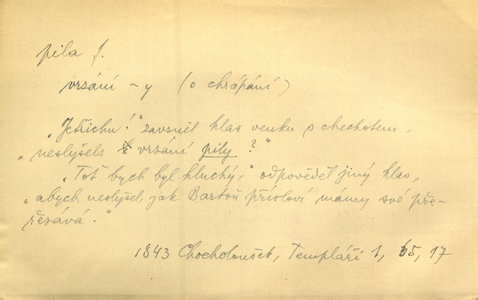 pila f.
vrzání -y (o chrápání)
„Jetřichu!" zavznil hlas venku s chechotem,
„neslyšels vrzání pily?"
„Toť bych byl hluchý," odpověděl jiný hlas,
„abych neslyšel, jak Bartoň přísloví mámy své pře-
řezává."
1843 Chocholoušek, Templáři 1, 65, 17